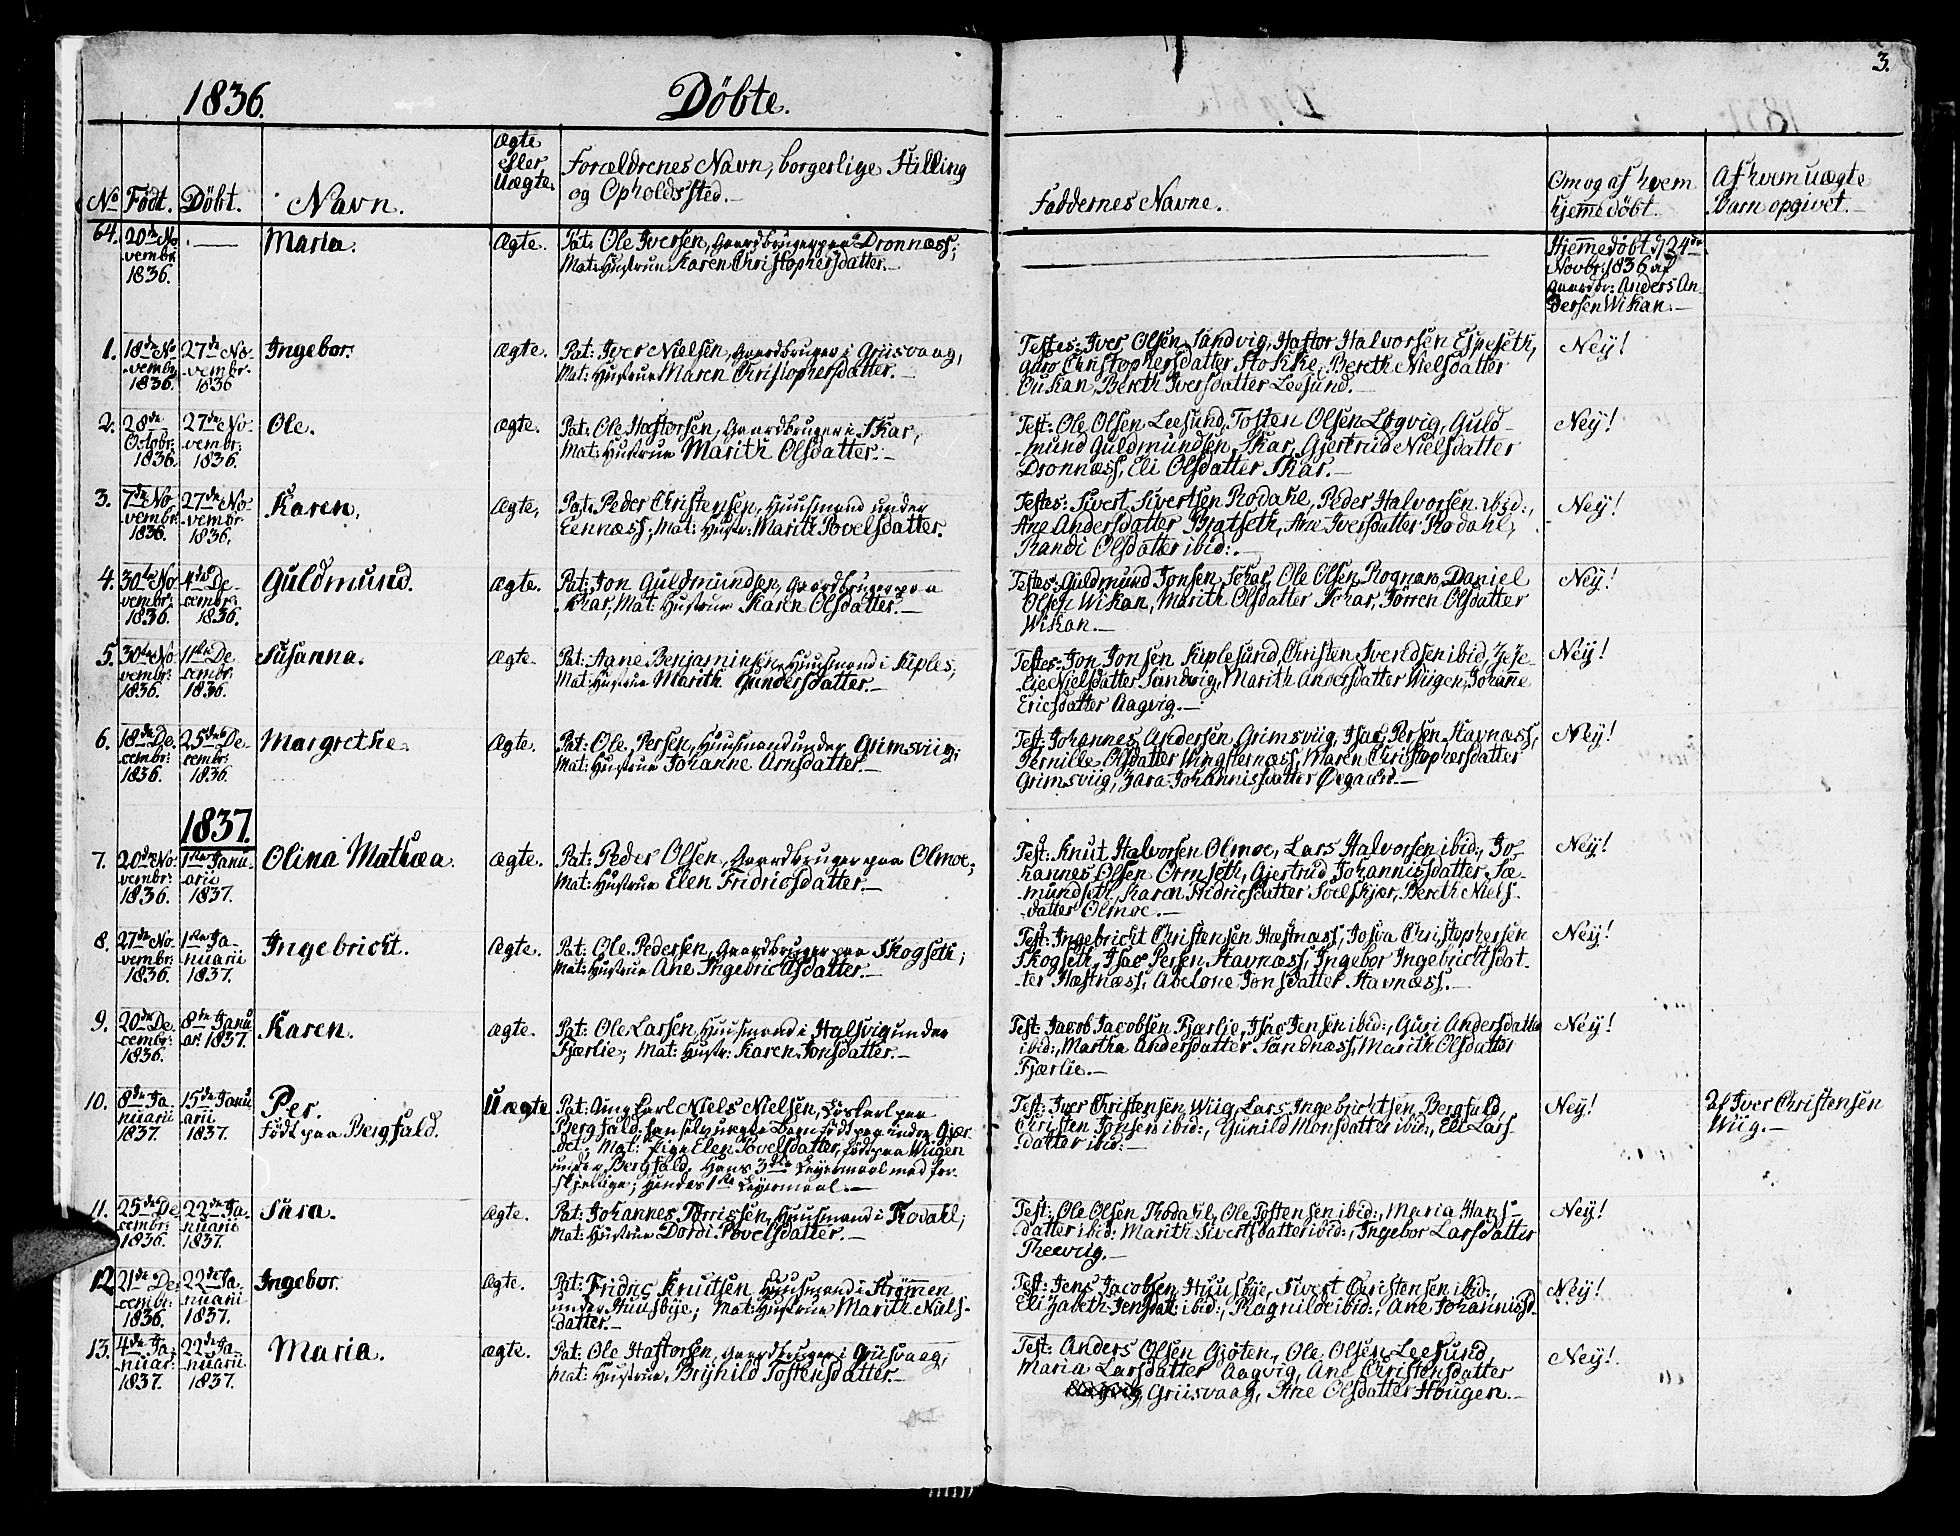 3.
1836. Döbte.
No Födt. Döbt. Navn. Ægte eller Uægte. Forældrenes Navn, borgerlige Stilling og Opholdssted.
Faddernes Navne. Om og af hvem hjemmedöbt. Af hvem uægte Barn opgivet.
64. 20de No
vembr:
1836.
Maria. Ægte. Pat: Ole Iversen, Gaardbruger paa Dronnæss;
Mat: Hustrue Karen Christophersdatter.
Hjemmedöbt d. 24de
Novbr: 1836 af
Gaardbr: Anders An-
dersen Wikan.
1. 18de No
vembr
1836.
27de No-
vembr.
1836
Ingebor. Ægte. Pat: Iver Nielsen, Gaardbruger i Griisvaag,
Mat: Hustrue Maren Christophersdatter.
Testes: Iver Olsen Sandvig, Hastor Halvorsen Espeseth,
Guro Christophersdatter Stokke, Bereth Nielsdatter
Ouskan, Bereth Iversdatter Leesund.
Ney!
2. 28de
Octobr:
1836.
27de No-
vembr:
1836.
Ole. Ægte. Pat: Ole Hastorsen, Gaardbruger i Skar,
Mat: Hustrue Marith Olsdatter.
Test: Ole Olsen Leesund, Tosten Olsen Løgvig, Guld-
mund Guldmundsen Skar, Gjertrud Nielsdatter
Dronnæss, Eli Olsdatter Skar.
Ney!
3. 7de No
vembr
1836.
27de No-
vembr
1836.
Karen. Ægte. Pat: Peder Christensen, Huusmand under
Lennæss; Mat: Hustr: Marith Povelsdatter.
Testes: Sivert Sivertsen Rodahl, Peder Halvorsen ibid:,
Ane Andersdatter Bratseth, Ane Iversdatter Rodahl,
Randi Olsdatter ibid:.
Ney!
4. 30te No
vembr:
1836.
4de De-
cembr:
1836.
Guldmund. Ægte. Pat: Jon Guldmundsen, Gaardbruger paa
Skar, Mat: Hustrue Karen Olsdatter.
Testes: Guldmund Jonsen Skar, Ole Olsen Rognæs, Daniel
Olsen Wikan, Marith Olsdatter Skar, Jörren Olsdatter
Wikan.
Ney!
5. 30te No
vembr:
1836.
11te De
cembr:
1836.
Susanna. Ægte. Pat: Aane Benjaminsen, Huusmand i Kiples,
Mat: Hustrue Marith Gundersdatter.
Testes: Jon Jonsen Kiplesund, Christen Svendsen ibid, Zeze-
lie Nielsdatter Sandvig, Marith Andersdatter Wiigen, Johanne
Ericsdatter Aagvig.
Ney!
6. 18de De.
cembr:
1836.
25de De-
cembr:
1836.
Margrethe. Ægte. Pat: Ole Persen, Huusmand under Grimsviig;
Mat: Hustrue Johanne Arnsdatter.
Test: Johannes Andersen Grimsviig, Isac Persen Stavnæss,
Pernille Olsdatter Wingsternæss, Maren Christophersdatter
Grimsviig, Zara Johannisdatter Øegaard.
Ney!
1837.
7. 20de No-
vembr:
1836.
1ste Janu-
arii
1837.
Olina Mathæa. Ægte. Pat: Peder Olsen, Gaardbruger paa Olmoe;
Mat: Hustrue Elen Fridricsdatter.
Test: Knut Halvorsen Olmoe, Lars Halvorsen ibid:, Jo-
hannes Olsen Ormseth, Gjertrud Johannisdatter Sæ-
mundseth, Karen Fridricsdatter Soelskjær, Bereth Niels-
datter Olmoe.
Ney!
8. 27de No-
vembr:
1836.
1ste Ja-
nuarii
1837.
Ingebricht. Ægte. Pat: Ole Pedersen, Gaardbruger paa Skogseth;
Mat: Hustrue Ane Ingebrichtsdatter.
Test: Ingebricht Christensen Hæstnæss, Josva Christophersen
Skogseth, Isac Persen Stavnæss, Ingebor Ingebrichtsdat-
ter Hæstnæss, Abelone Jonsdatter Stavnæss.
Ney!
9. 20de De.
cembr:
1836.
8de Janu
ar. 1837.
Karen. Ægte. Pat: Ole Larsen, Huusmand i Halsvig under
Fjærlie; Mat: Hustr: Karen Jonsdatter.
Test: Jacob Jacobsen Fjærlie, Isac Jensen ibid:, Guri Andersdatter
ibid:, Martha Andersdatter Sandnæss, Marith Olsdatter
Fjærlie.
Ney!
10. 8de Ja-
nuarii
1837.
15de Janu
arii.
1837.
Per.
Födt paa Bergfald.
Uægte Pat: Ung Karl Niels Nielsen, Löskarl paa
Bergfald, hendes uægte Barn födt paa indre Gjær-
det; Mat: Pige Elen Povelsdatter, födt paa Wiigen
under Bergfald. Hans 3die Leyermaal med for-
skjellige; Hendes 1ste Leyermaal.
Test: Iver Christensen Wiig, Lars Ingebrichtsen Bergfald,
Christen Jonsen ibid:, Gunild Monsdatter ibid:, Eli Lars-
datter ibid:
Ney!
Af Iver Christensen
Wiig.
11. 25de De
cembr:
1836.
22de Ja-
nuarii
1837.
Sara. Ægte. Pat: Johannes Törrissen, Huusmand i Rodahl;
Mat: Hustrue Dordi Povelsdatter.
Test: Ole Olsen Rodahl, Ole Tostensen ibid:, Maria Hans-
datter ibid: Marith Sivertsdatter ibid:, Ingebor Larsdatter
Theevig.
Ney!
12 21de De-
cembr:
1836.
22de Ja-
nuarii
1837.
Ingebor. Ægte. Pat: Fridric Knutsen Huusmand i Strömmen
under Huusbye; Mat: Hustrue Marith Niels-
datter.
Test: Jens Jacobsen Huusbye, Sivert Christensen ibid:,
Elizabeth Jensdat: ibid:, Ragnilde ibid:, Ane Johannisd.
Ney!
13. 4de Ja-
nuar:
1837.
22de Ja-
nuarii
1837.
Maria. Ægte. Pat: Ole Hastorsen, Gaardbruger i Griisvaag,
Mat: Hustrue, Brynild Tostensdatter.
Test: Anders Olsen Gjöten, Ole Olsen Leesund,
Maria Larsdatter Aagvig, Ane Christensdatter
Griisvaag, Ane Olsdatter Hougen.
Ney!